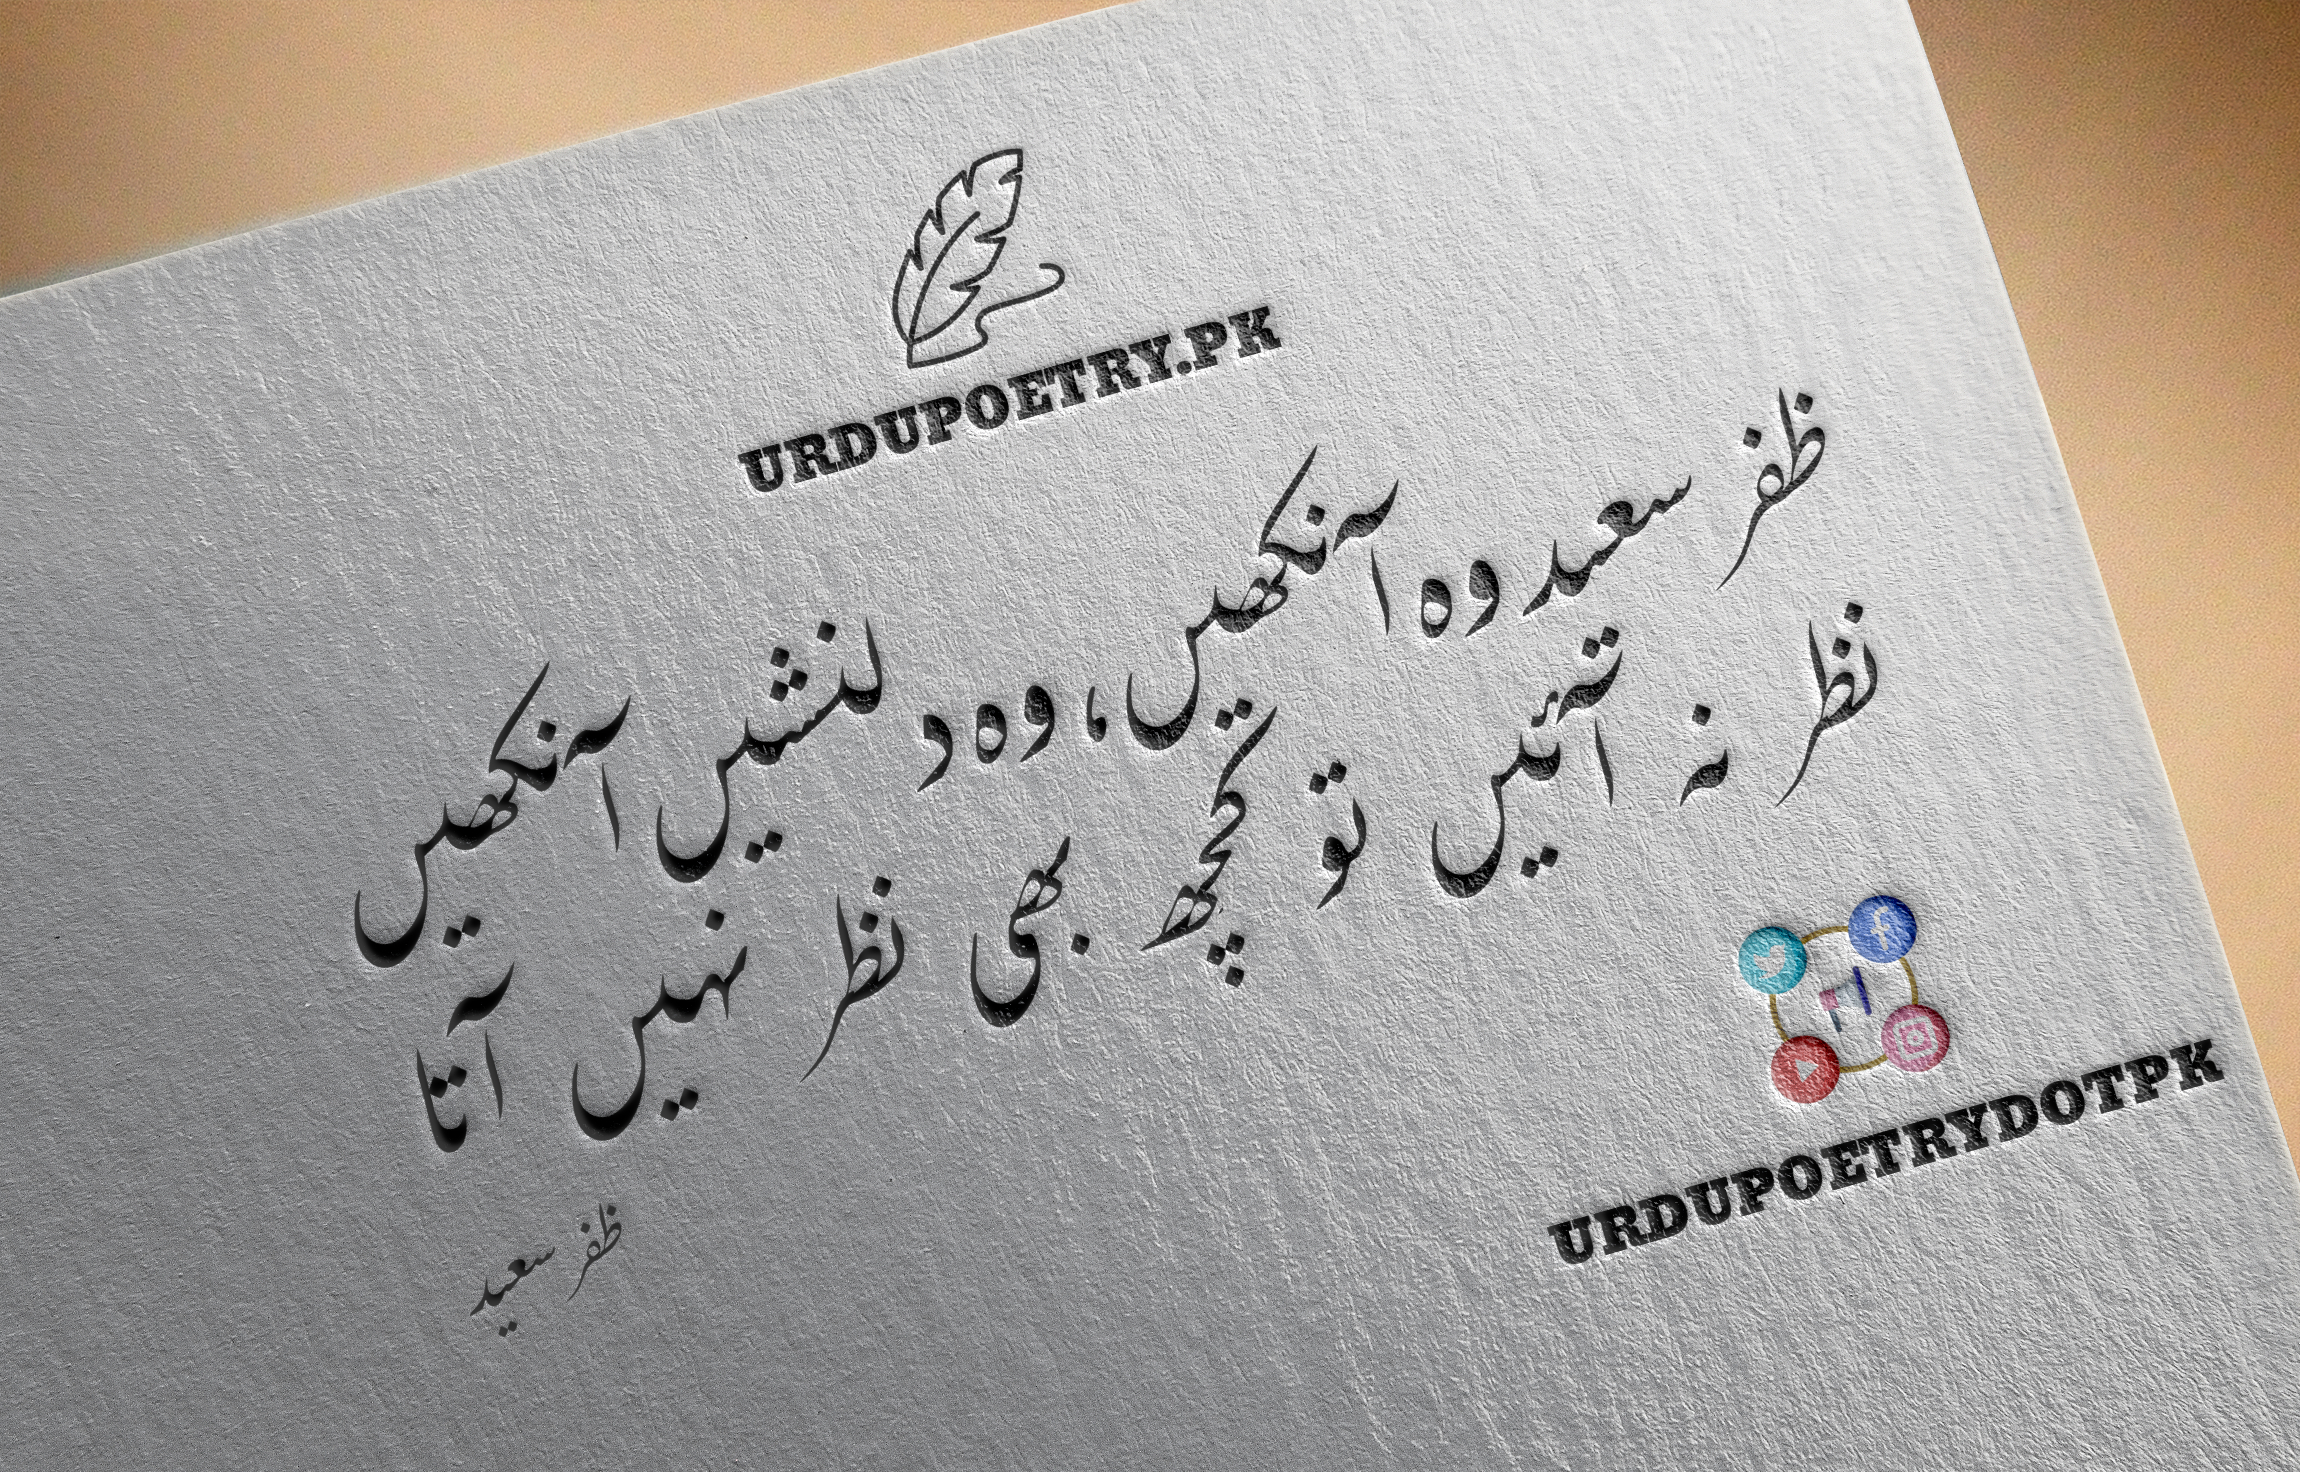 URDUPOETRY.PK
ظفر سعید وہ آنکھیں، وہ دلنشیں آنکھیں
نظر نہ آئیں تو کچھ بھی نظر نہیں آتا
ظفر سعید
URDUPOETRYDOTPK